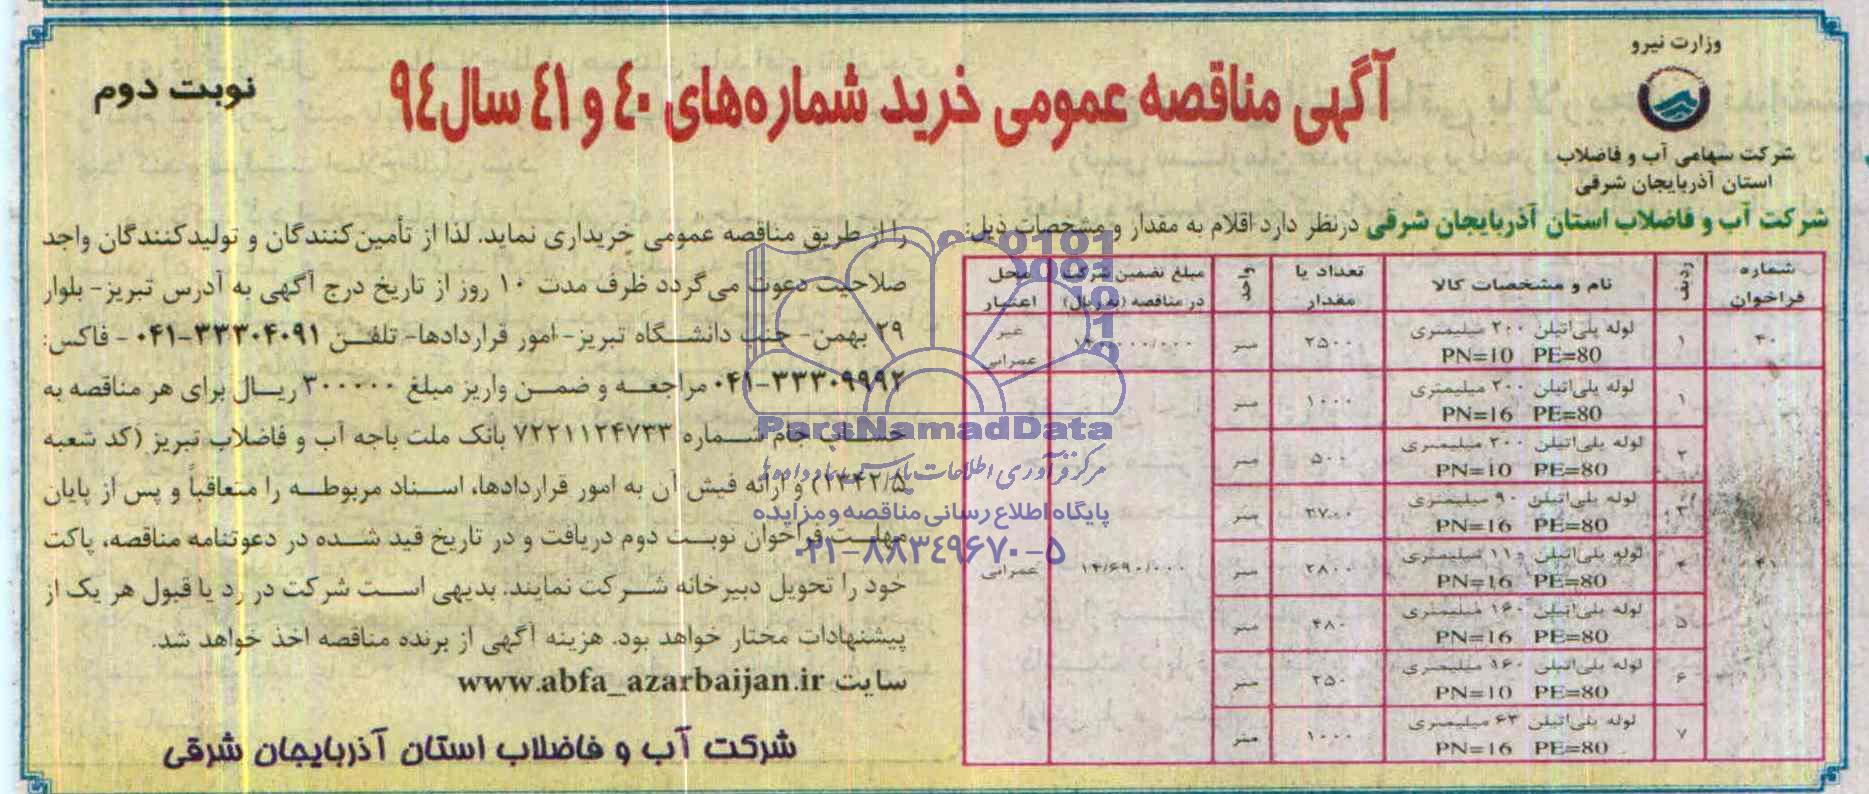 وزارت نیرو
شرکت سهامی آب و فاضلاب
استان آذربایجان شرقی
آگهی مناقصه عمومی خرید شماره‌های ۴۰ و ۴۱ سال ۹۴
نوبت دوم
شرکت آب و فاضلاب استان آذربایجان شرقی درنظر دارد اقلام به مقدار و مشخصات ذیل:
شماره فراخوان | ردیف | نام و مشخصات کالا | تعداد یا مقدار | واحد | مبلغ تضمین شرکت در مناقصه (به ریال) | محل اعتبار
۴۰ | ۱ | لوله پلی‌اتیلن ۲۰۰ میلیمتری PN=10 PE=80 | ۲۵۰۰ | متر | غیر عمرانی
۴۱ | ۱ | لوله پلی‌اتیلن ۲۰۰ میلیمتری PN=16 PE=80 | ۱۰۰۰ | متر | ۱۴/۶۹۰/۰۰۰ | عمرانی
۲ | لوله پلی‌اتیلن ۲۰۰ میلیمتری PN=10 PE=80 | ۵۰۰ | متر
۳ | لوله پلی‌اتیلن ۹۰ میلیمتری PN=16 PE=80 | ۲۷۰۰ | متر
۴ | لوله پلی‌اتیلن ۱۱۰ میلیمتری PN=16 PE=80 | ۲۸۰۰ | متر
۵ | لوله پلی‌اتیلن ۱۶۰ میلیمتری PN=16 PE=80 | ۴۸۰ | متر
۶ | لوله پلی‌اتیلن ۱۶۰ میلیمتری PN=10 PE=80 | ۲۵۰ | متر
۷ | لوله پلی‌اتیلن ۶۳ میلیمتری PN=16 PE=80 | ۱۰۰۰ | متر
را از طریق مناقصه عمومی خریداری نماید. لذا از تأمین‌کنندگان و تولیدکنندگان واجد
صلاحیت دعوت می‌گردد ظرف مدت ۱۰ روز از تاریخ درج آگهی به آدرس تبریز- بلوار
۲۹ بهمن- جنب دانشگاه تبریز- امور قراردادها- تلفن ۳۳۳۰۴۰۹۱-۰۴۱ - فاکس:
۳۳۳۰۹۹۹۲-۰۴۱ مراجعه و ضمن واریز مبلغ ۳۰۰۰۰۰ ریال برای هر مناقصه به
حساب جام شماره ۷۲۲۱۱۲۴۷۳۳ بانک ملت باجه آب و فاضلاب تبریز (کد شعبه
۱۳۴۲/۵) و ارائه فیش آن به امور قراردادها، اسناد مربوطه را متعاقباً و پس از پایان
مهلت فراخوان نوبت دوم دریافت و در تاریخ قید شده در دعوتنامه مناقصه، پاکت
خود را تحویل دبیرخانه شرکت نمایند. بدیهی است شرکت در رد یا قبول هر یک از
پیشنهادات مختار خواهد بود. هزینه آگهی از برنده مناقصه اخذ خواهد شد.
سایت www.abfa_azarbaijan.ir
شرکت آب و فاضلاب استان آذربایجان شرقی
ParsNamadData
مرکز فرآوری اطلاعات پارس نماد داده‌ها
پایگاه اطلاع رسانی مناقصه و مزایده
۰۲۱-۸۸۳۴۹۶۷۰-۵